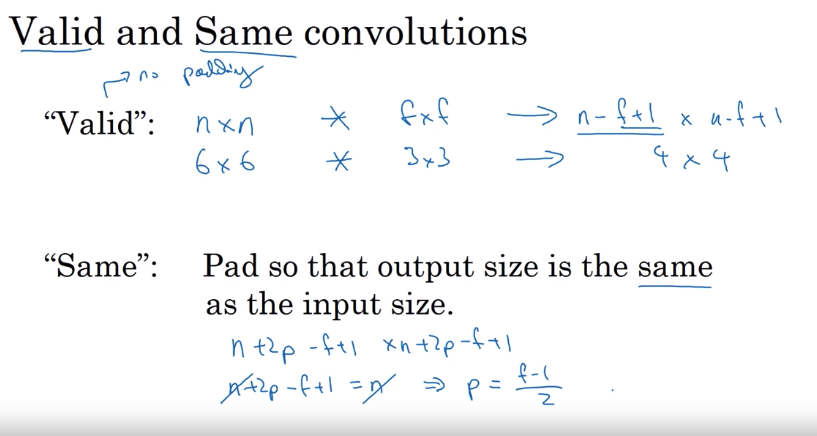 Valid and Same convolutions
→ no padding
“Valid”: n×n * f×f → n-f+1 × n-f+1
6×6 * 3×3 → 4 × 4
“Same”: Pad so that output size is the same
as the input size.
n+2p-f+1 ×n+2p-f+1
n+2p-f+1 = n ⇒ p = f-1/2